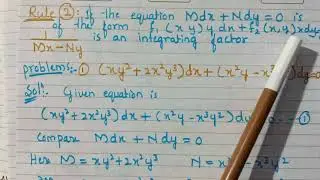 Rule ② : If the equation Mdx + Ndy = 0 is
of the form f₁(xy) y dx + f₂(x,y) xdy
1/(Mx - Ny) is an integrating factor
problems:- ① (xy² + 2x²y³)dx + (x²y - x³ dy=0
Sol:- Given equation is
(xy² + 2x²y³)dx + (x²y - x³y²)dy
Compare Mdx + Ndy = 0
Here M = xy² + 2x²y³ N = x²y - x³y²